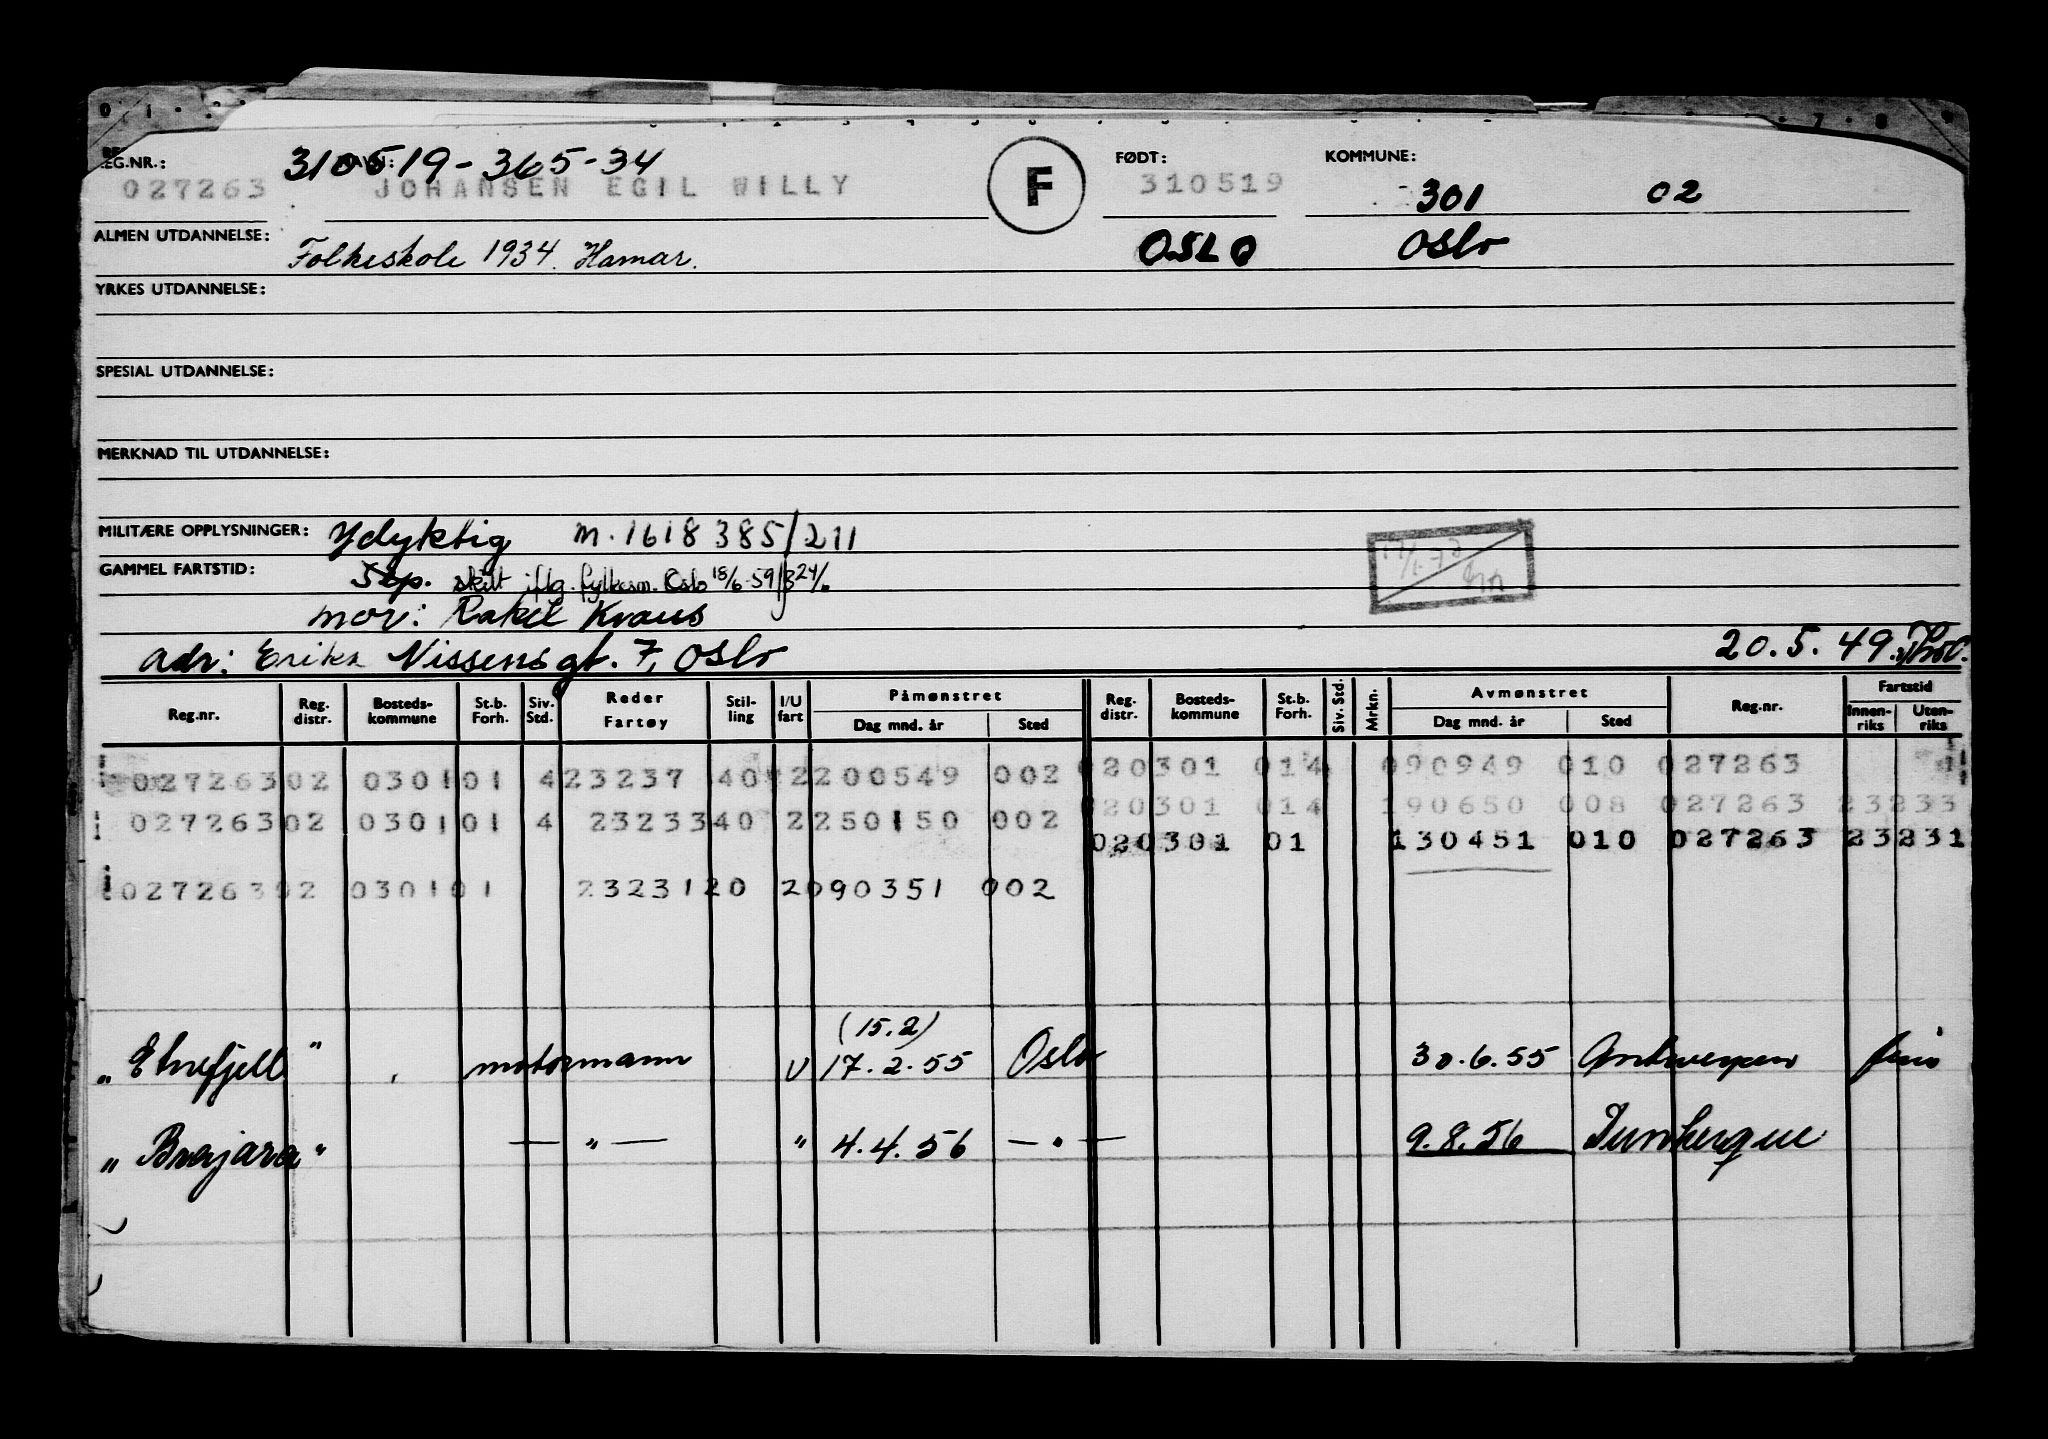 REG.NR.: NAVN: 310519-365-34 F FØDT: KOMMUNE:
027263 JOHANSEN EGIL WILLY 310519 301 02
ALMEN UTDANNELSE: Folkeskole 1934. Hamar. OSLO Oslo
YRKES UTDANNELSE:
SPESIAL UTDANNELSE:
MERKNAD TIL UTDANNELSE:
MILITÆRE OPPLYSNINGER: Udyktig m. 1618385/211
GAMMEL FARTSTID: Sep. skilt iflg. fylkesm. Oslo 18/6-59 24/6
mor: Rakel Kraus
adr: Erika Nissensgt. 7, Oslo 20.5.49.
Reg.nr. Reg. distr. Bosteds- kommune St.b. Forh. Siv. Std. Reder Fartøy Stil- ling I/U fart Påmønstret Dag mnd. år Sted Reg. distr. Bosteds- kommune St.b. Forh. Siv. Std. Mrkn. Avmønstret Dag mnd. år Sted Reg.nr. Fartstid Innen- riks Uten- riks
027263 02 0301 01 4 23237 40 2 200549 002 020301 014 090949 010 027263
020301 014 190650 008 027263 23233
027263 02 0301 01 4 23233 40 2 250150 002
020301 01 130451 010 027263 23231
027263 02 0301 01 23231 20 2 090351 002
(15.2)
"Etnefjell" motormann U 17.2.55 Oslo 30.6.55 Antwerpen
"Brajara" — " — " 4.4.56 — " — 9.8.56 Dunkerque